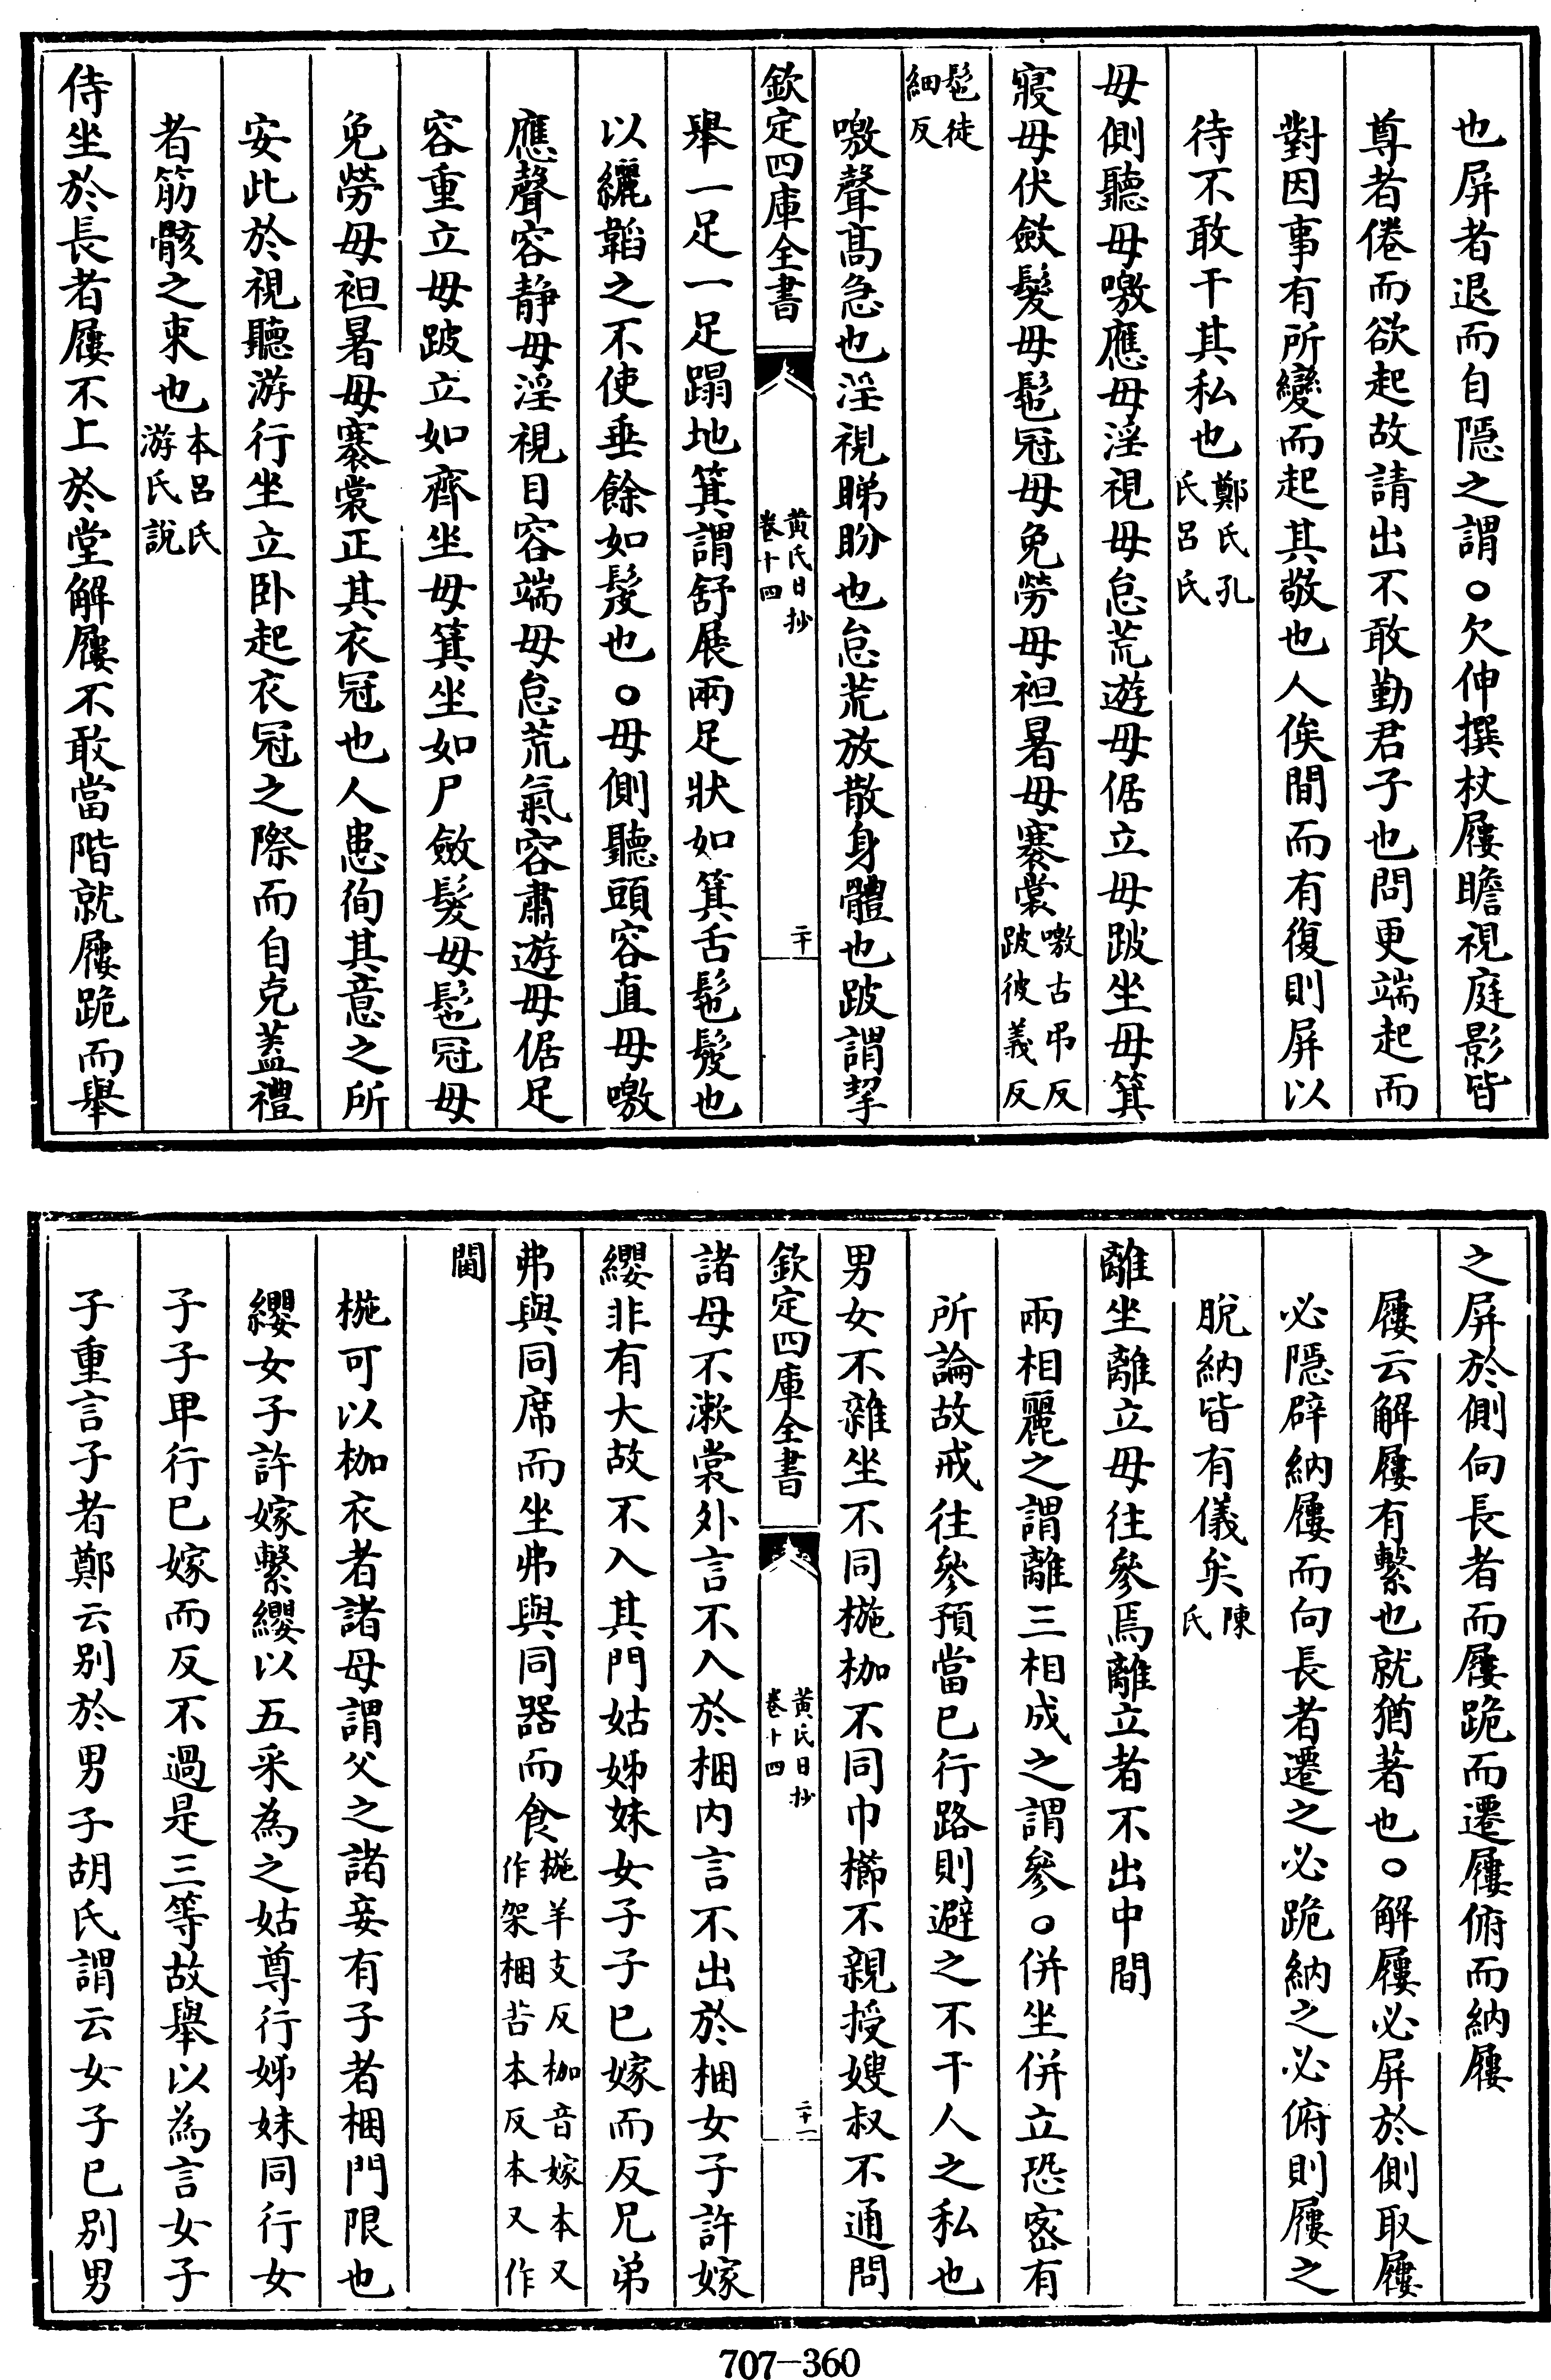 也屏者退而自隠之謂○欠伸撰杖屨瞻視庭影皆
尊者倦而欲起故請出不敢勤君子也問更端起而
對因事有所變而起其敬也人俟間而有復則屏以
待不敢干其私也鄭氏孔氏呂氏
毋側聽毋噭應毋淫視毋怠荒遊毋倨立毋跛坐毋箕
寢毋伏斂髮毋髢冠毋免勞毋袒暑毋褰裳噭古吊反跛彼義反
髢徒細反
噭聲髙急也淫視睇盼也怠荒放散身體也跛謂挈
欽定四庫全書
黄氏日抄
卷十四
二十
舉一足一足蹋地箕謂舒展兩足狀如箕舌髢髲也
以纚韜之不使垂餘如髲也○毋側聽頭容直毋噭
應聲容静毋淫視目容端毋怠荒氣容肅遊毋倨足
容重立毋跛立如齊坐毋箕坐如尸斂髮毋髢冠毋
免勞毋袒暑毋褰裳正其衣冠也人患徇其意之所
安此於視聽游行坐立卧起衣冠之際而自克蓋禮
者筋骸之束也本呂氏游氏說
侍坐於長者屨不上於堂解屨不敢當階就屨跪而舉
之屏於側向長者而屨跪而遷屨俯而納屨
屨云解屨有繫也就猶著也○解屨必屏於側取屨
必隠辟納屨而向長者遷之必跪納之必俯則屨之
脫納皆有儀矣陳氏
離坐離立毋往參焉離立者不出中間
兩相麗之謂離三相成之謂參○併坐併立恐宻有
所論故戒往參預當已行路則避之不干人之私也
男女不雜坐不同椸枷不同巾櫛不親授嫂叔不通問
欽定四庫全書
黄氏日抄
卷十四
二十一
諸母不漱裳外言不入於梱内言不出於梱女子許嫁
纓非有大故不入其門姑姊妹女子子已嫁而反兄弟
弗與同席而坐弗與同器而食椸羊支反枷音嫁本又作架梱苦本反本又作
閫
椸可以枷衣者諸母謂父之諸妾有子者梱門限也
纓女子許嫁繫纓以五采為之姑尊行姊妹同行女
子子卑行已嫁而反不過是三等故舉以為言女子
子重言子者鄭云别於男子胡氏謂云女子已别男
707-360